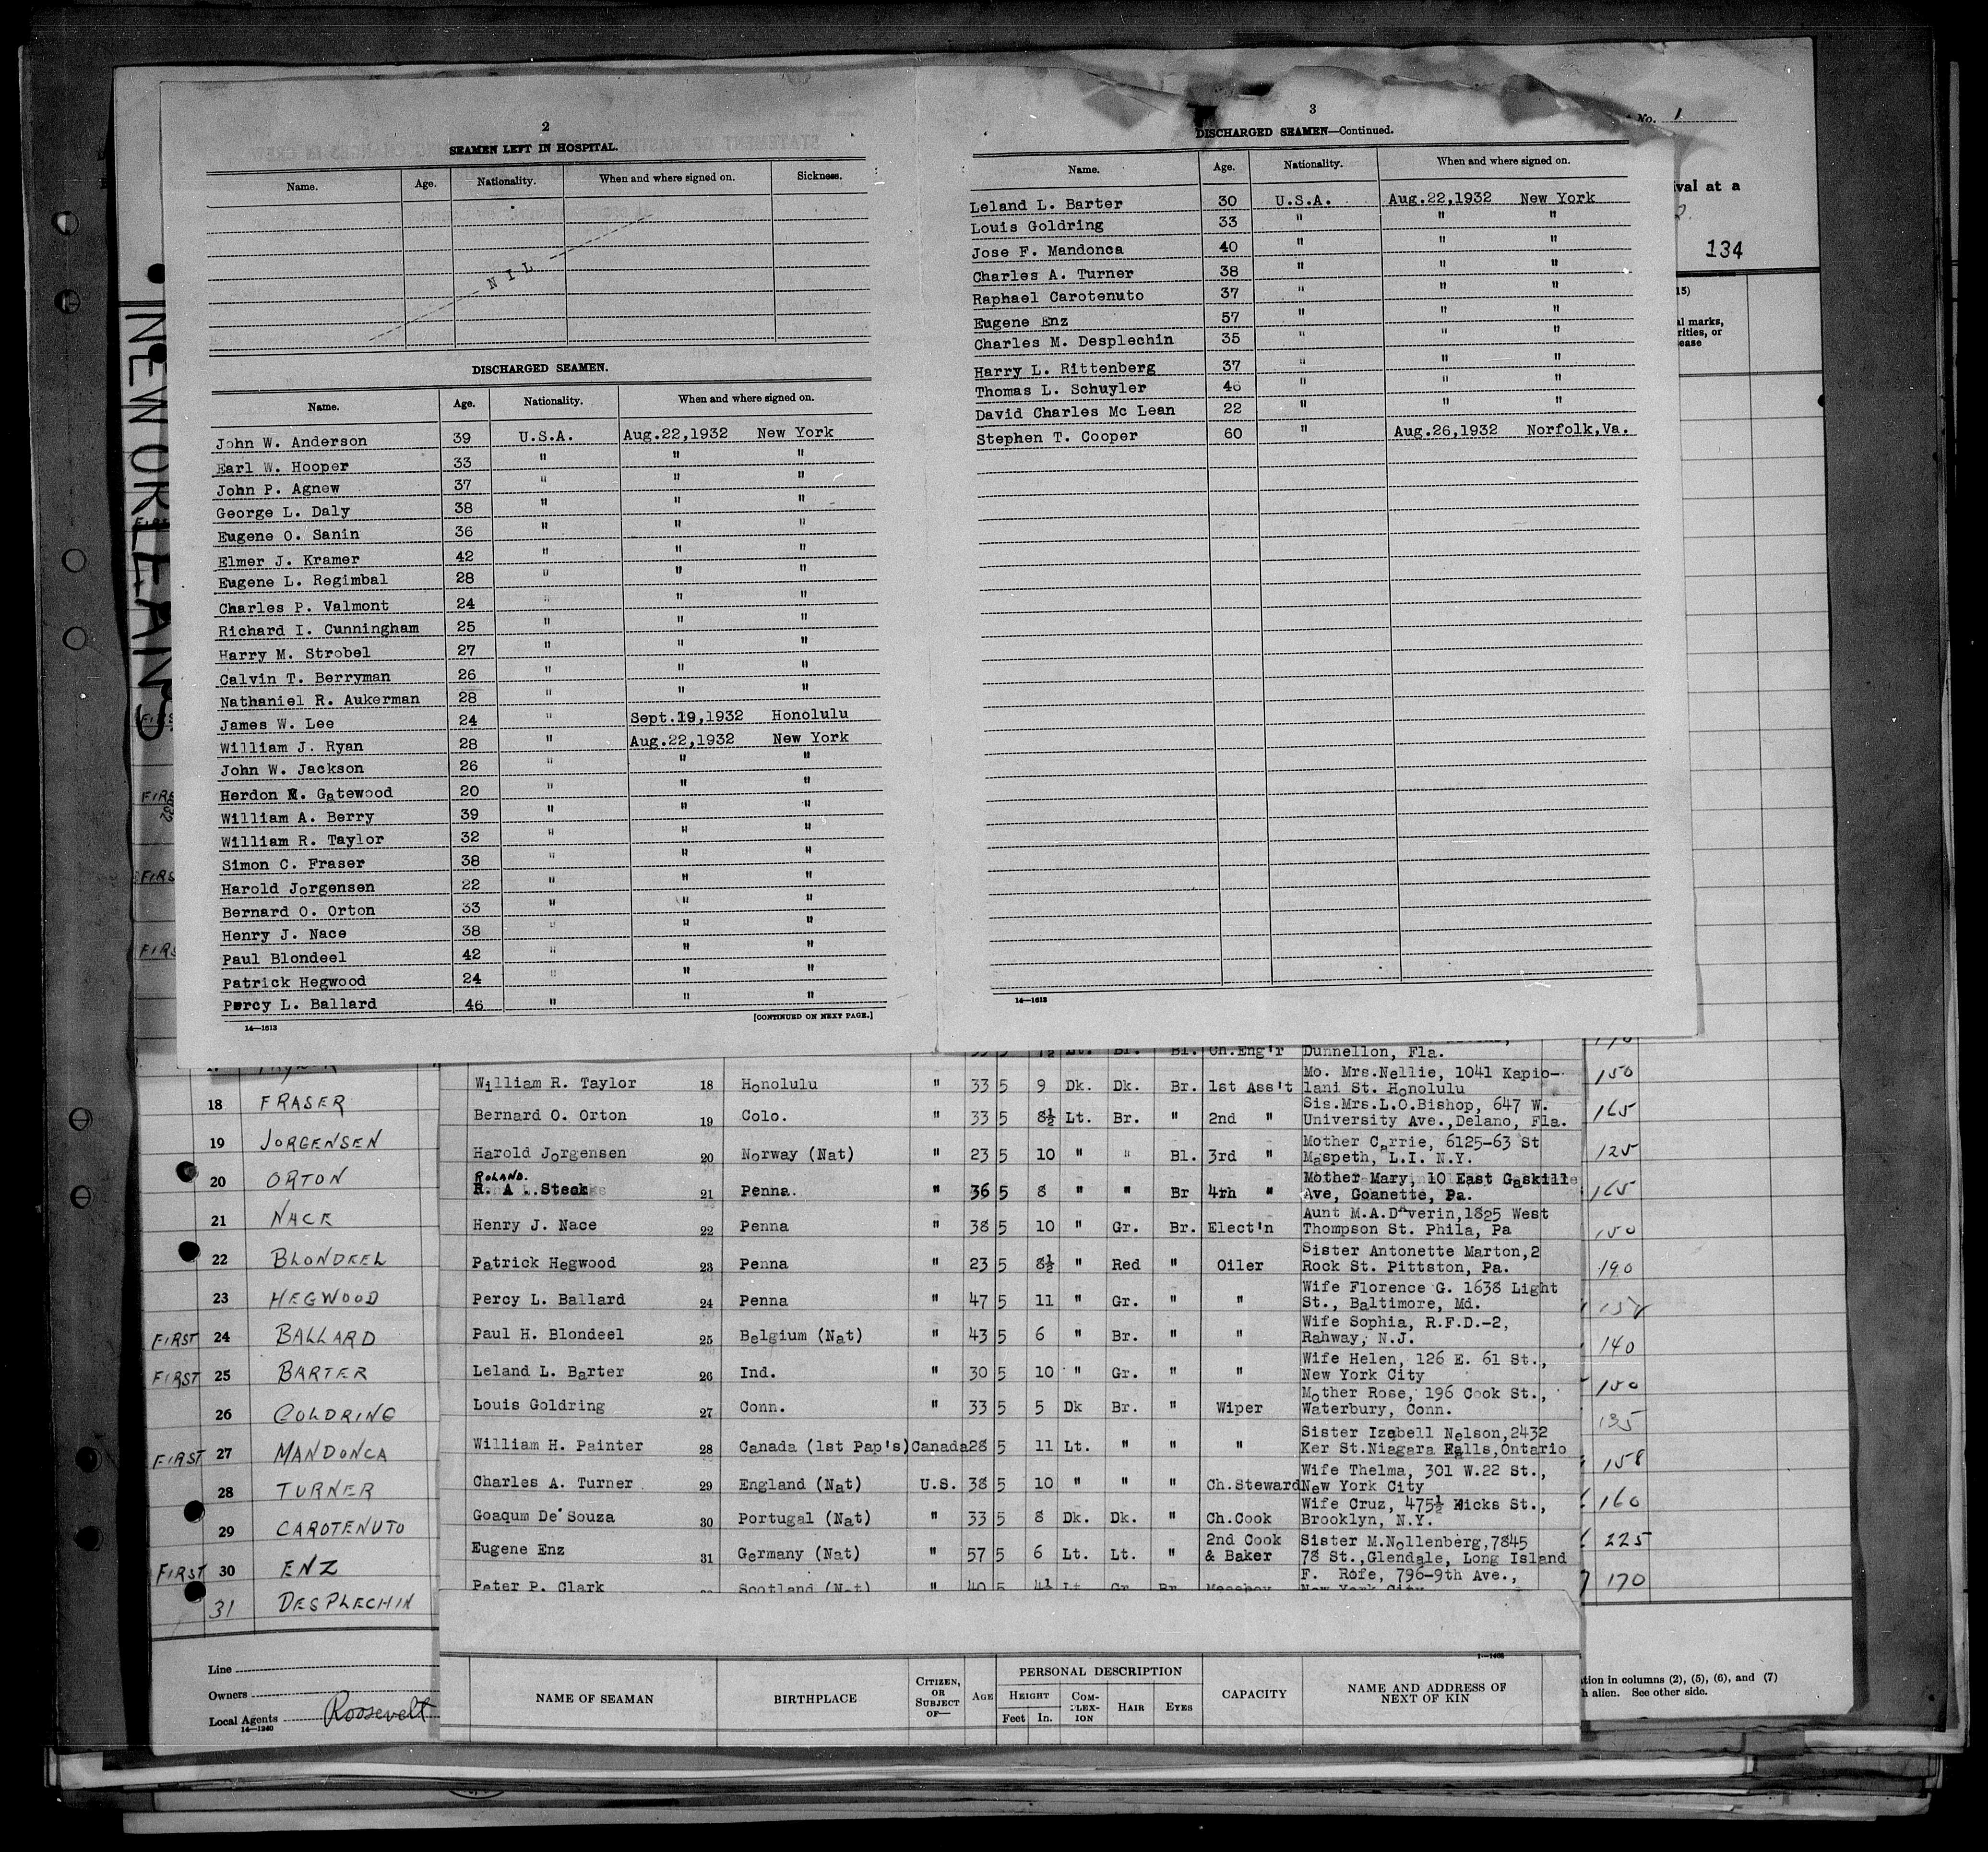 2
SEAMEN LEFT IN HOSPITAL.
Name. Age. Nationality. When and where signed on. Sickness.
NIL
DISCHARGED SEAMEN.
Name. Age. Nationality. When and where signed on.
John W. Anderson 39 U.S.A. Aug.22,1932 New York
Earl W. Hooper 33 " " "
John P. Agnew 37 " " "
George L. Daly 38 " " "
Eugene O. Sanin 36 " " "
Elmer J. Kramer 42 " " "
Eugene L. Regimbal 28 " " "
Charles P. Valmont 24 " " "
Richard I. Cunningham 25 " " "
Harry M. Strobel 27 " " "
Calvin T. Berryman 26 " " "
Nathaniel R. Aukerman 28 " " "
James W. Lee 24 " Sept.19,1932 Honolulu
William J. Ryan 28 " Aug.22,1932 New York
John W. Jackson 26 " " "
Herdon M. Gatewood 20 " " "
William A. Berry 39 " " "
William R. Taylor 32 " " "
Simon C. Fraser 38 " " "
Harold Jorgensen 22 " " "
Bernard O. Orton 33 " " "
Henry J. Nace 38 " " "
Paul Blondeel 42 " " "
Patrick Hegwood 24 " " "
Percy L. Ballard 46 " " "
14—1613 [CONTINUED ON NEXT PAGE.]
3
DISCHARGED SEAMEN—Continued.
Name. Age. Nationality. When and where signed on.
Leland L. Barter 30 U.S.A. Aug.22,1932 New York
Louis Goldring 33 " " "
Jose F. Mandonca 40 " " "
Charles A. Turner 38 " " "
Raphael Carotenuto 37 " " "
Eugene Enz 57 " " "
Charles M. Desplechin 35 " " "
Harry L. Rittenberg 37 " " "
Thomas L. Schuyler 46 " " "
David Charles Mc Lean 22 " " "
Stephen T. Cooper 60 " Aug.26,1932 Norfolk,Va.
14—1613
No. 1
val at a
134
15)
al marks,
rities, or
ease
NEW ORLEANS
FIRS
FIRS
FIRS
FIRS
Ch.Eng'r Dunnellon, Fla.
William R. Taylor 18 Honolulu " 33 5 9 Dk. Dk. Br. 1st Ass't Mo. Mrs.Nellie, 1041 Kapio-
lani St. Honolulu 150
Bernard O. Orton 19 Colo. " 33 5 8½ Lt. Br. " 2nd " Sis.Mrs.L.O.Bishop, 647 W.
University Ave.,Delano, Fla. 165
Harold Jorgensen 20 Norway (Nat) " 23 5 10 " " Bl. 3rd " Mother Carrie, 6125-63 St
Maspeth, L.I. N.Y. 125
ROLAND.
R. A. Steck 21 Penna. " 36 5 8 " " Br 4th " Mother Mary, 10 East Gaskille
Ave, Goanette, Pa. 165
Henry J. Nace 22 Penna " 38 5 10 " Gr. Br. Elect'n Aunt M.A.Daverin,1825 West
Thompson St. Phila, Pa 150
Patrick Hegwood 23 Penna " 23 5 8½ " Red " Oiler Sister Antonette Marton,2
Rock St. Pittston, Pa. 190
Percy L. Ballard 24 Penna " 47 5 11 " Gr. " " Wife Florence G. 1638 Light
St., Baltimore, Md.
Paul H. Blondeel 25 Belgium (Nat) " 43 5 6 " Br. " " Wife Sophia, R.F.D.-2,
Rahway, N.J. 140
Leland L. Barter 26 Ind. " 30 5 10 " Gr. " " Wife Helen, 126 E. 61 St.,
New York City 150
Louis Goldring 27 Conn. " 33 5 5 Dk Br. " Wiper Mother Rose, 196 Cook St.,
Waterbury, Conn. 135
William H. Painter 28 Canada (1st Pap's) Canada 28 5 11 Lt. " " " Sister Izabell Nelson,2432
Ker St.Niagara Falls,Ontario 158
Charles A. Turner 29 England (Nat) U.S. 38 5 10 " " " Ch.Steward Wife Thelma, 301 W.22 St.,
New York City 160
Goaqum De Souza 30 Portugal (Nat) " 33 5 8 Dk. Dk. " Ch.Cook Wife Cruz, 475½ Hicks St.,
Brooklyn, N.Y. 225
Eugene Enz 31 Germany (Nat) " 57 5 6 Lt. Lt. " 2nd Cook & Baker Sister M.Nollenberg,7845
78 St.,Glendale, Long Island 170
Peter P. Clark Scotland (Nat) " 40 5 4½ Lt Gr Br Messboy F. Rofe, 796-9th Ave.,
New York City
18 FRASER
19 JORGENSEN
20 ORTON
21 NACE
22 BLONDEEL
23 HEGWOOD
FIRST 24 BALLARD
FIRST 25 BARTER
26 GOLDRING
FIRST 27 MANDONCA
28 TURNER
29 CAROTENUTO
FIRST 30 ENZ
31 DESPLECHIN
Line
Owners
Local Agents Roosevelt
14—1240
NAME OF SEAMAN BIRTHPLACE CITIZEN, OR SUBJECT OF— AGE PERSONAL DESCRIPTION HEIGHT Feet In. COM-PLEX-ION HAIR EYES CAPACITY NAME AND ADDRESS OF NEXT OF KIN
tion in columns (2), (5), (6), and (7)
h alien. See other side.